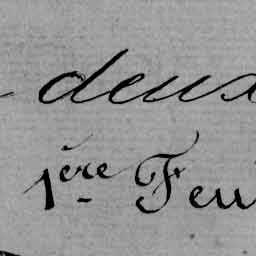 deux
1ère Feu